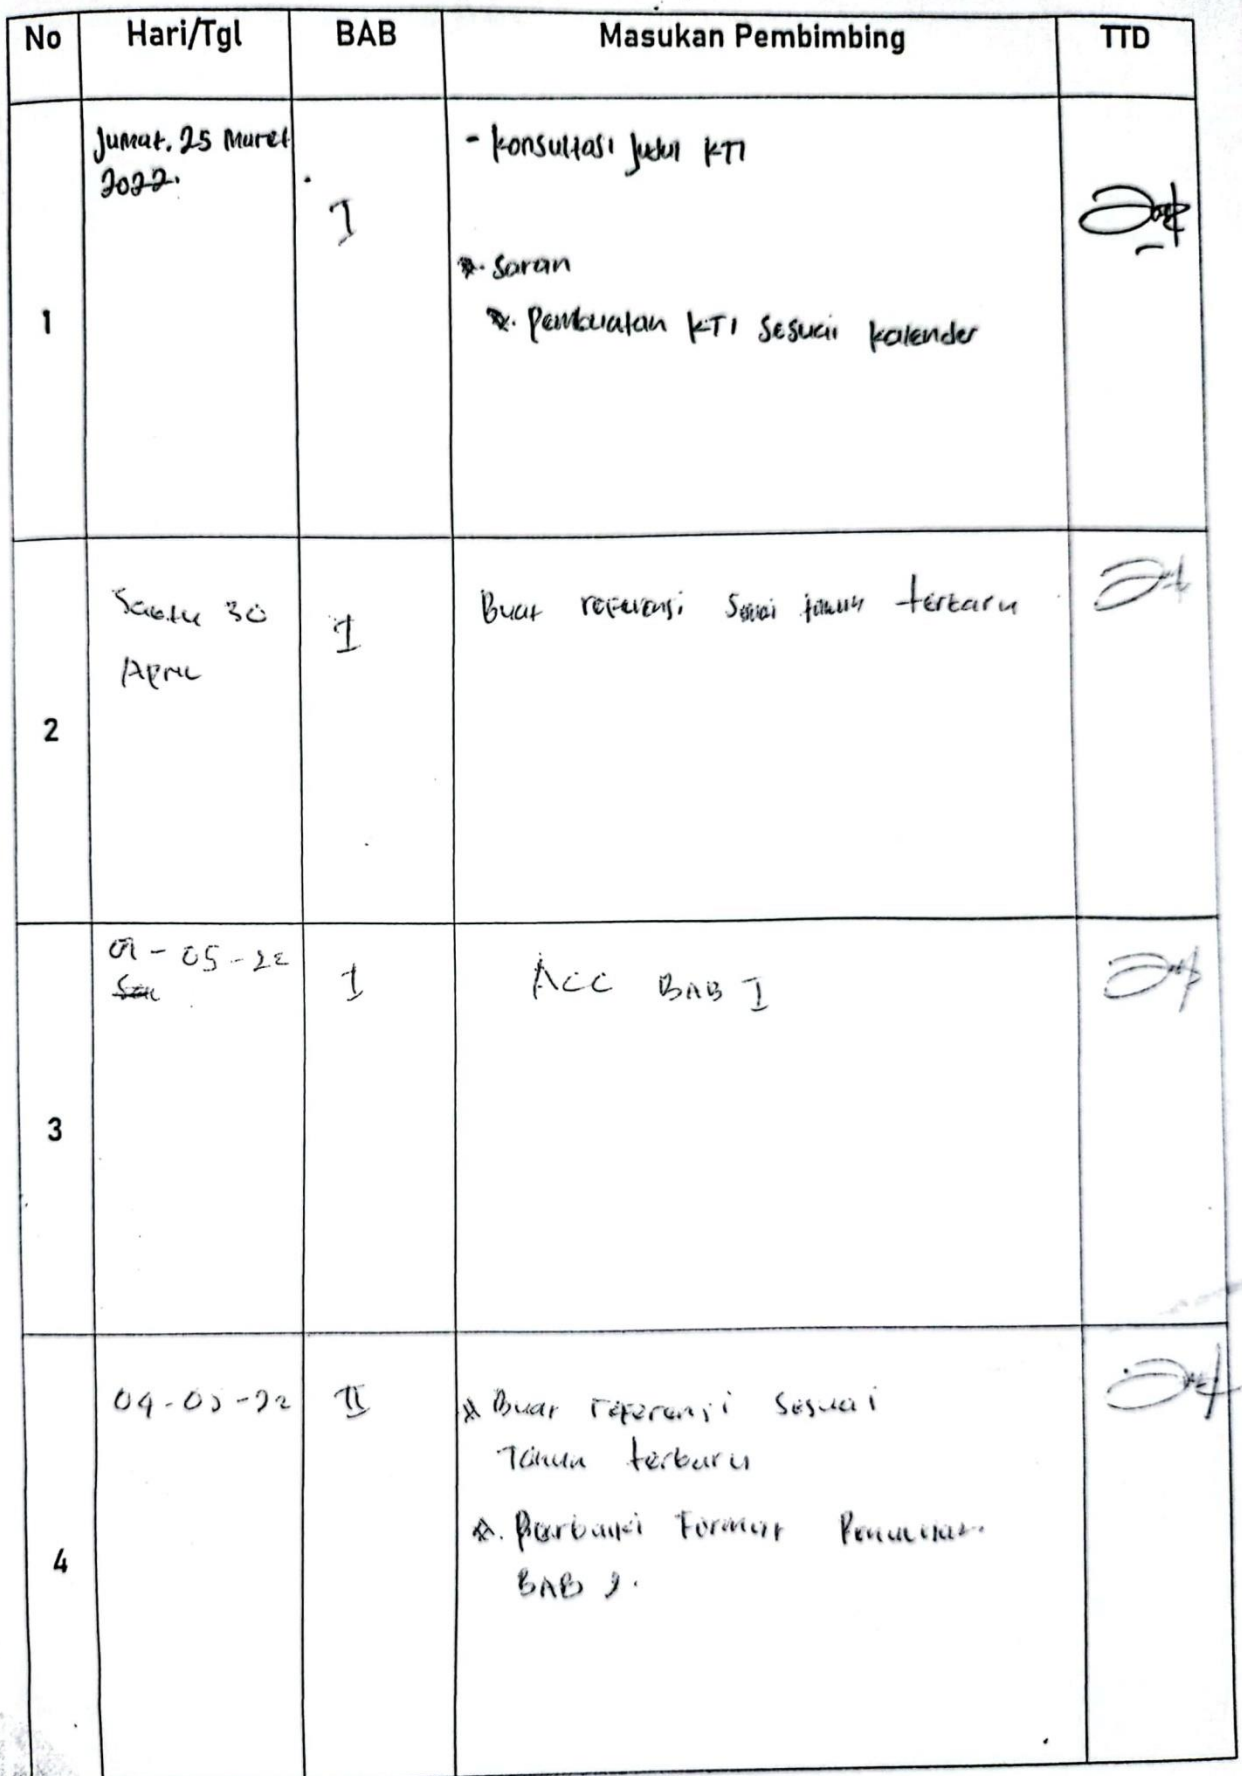 No Hari/Tgl BAB Masukan Pembimbing TTD
1
Jumat. 25 Maret
2022.
I
- konsultasi judul KTI
*. Saran
*. Pembuatan KTI sesuai kalender
2
Sabtu 30
April
I
Buat referensi sesuai tahun terbaru
3
01-05-22
I
ACC BAB I
4
04-05-22
II
* Buat referensi sesuai
Tahun terbaru
*. Perbaiki Format Penulisan
BAB 2.